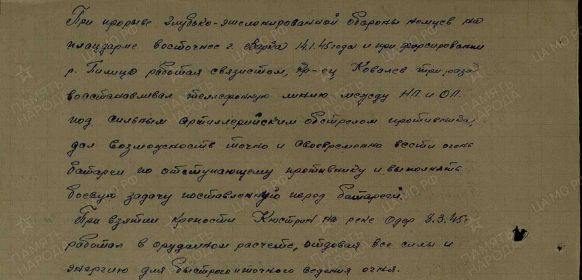 При прорыве глубоко-эшелонированной обороны немцев на
плацдарме восточнее г. Варка 14.1.45 года и при форсировании
р. Пилица работая связистом, кр-ец Ковалев три раза
восстанавливал телефонную линию между НП и ОП.
под сильным артиллерийским обстрелом противника,
дал возможность точно и своевременно вести огонь
батареи по отступающему противнику и выполнять
боевую задачу поставленную перед батареей.
При взятии крепости Кюстрин на реке Одер 8.3.45г
работал в орудийном расчете, отдавая все силы и
энергию для быстрого и точного ведения огня.